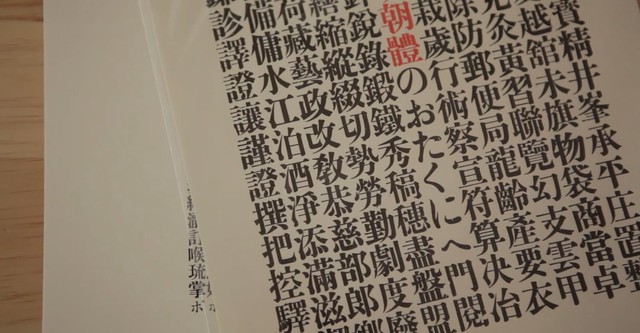 寶精井峯承平庄置
越舘未旗物袋商當卓
灸黃習聯覽幻支雲甲
除防郵便局龍齡產要衣
栽歲行術察宣符算決冶
朝體のおたくにへ門閲
銳錄鍛鐵秀稿穗盡盤盟
縮縱綴切勢勞勤劇度廢
荷藏藝政改敎恭慈部郎鄉
備傭水江泊酒淨添滿滋
診譯證讓謹證撰把控驛
喉琉掌ボ